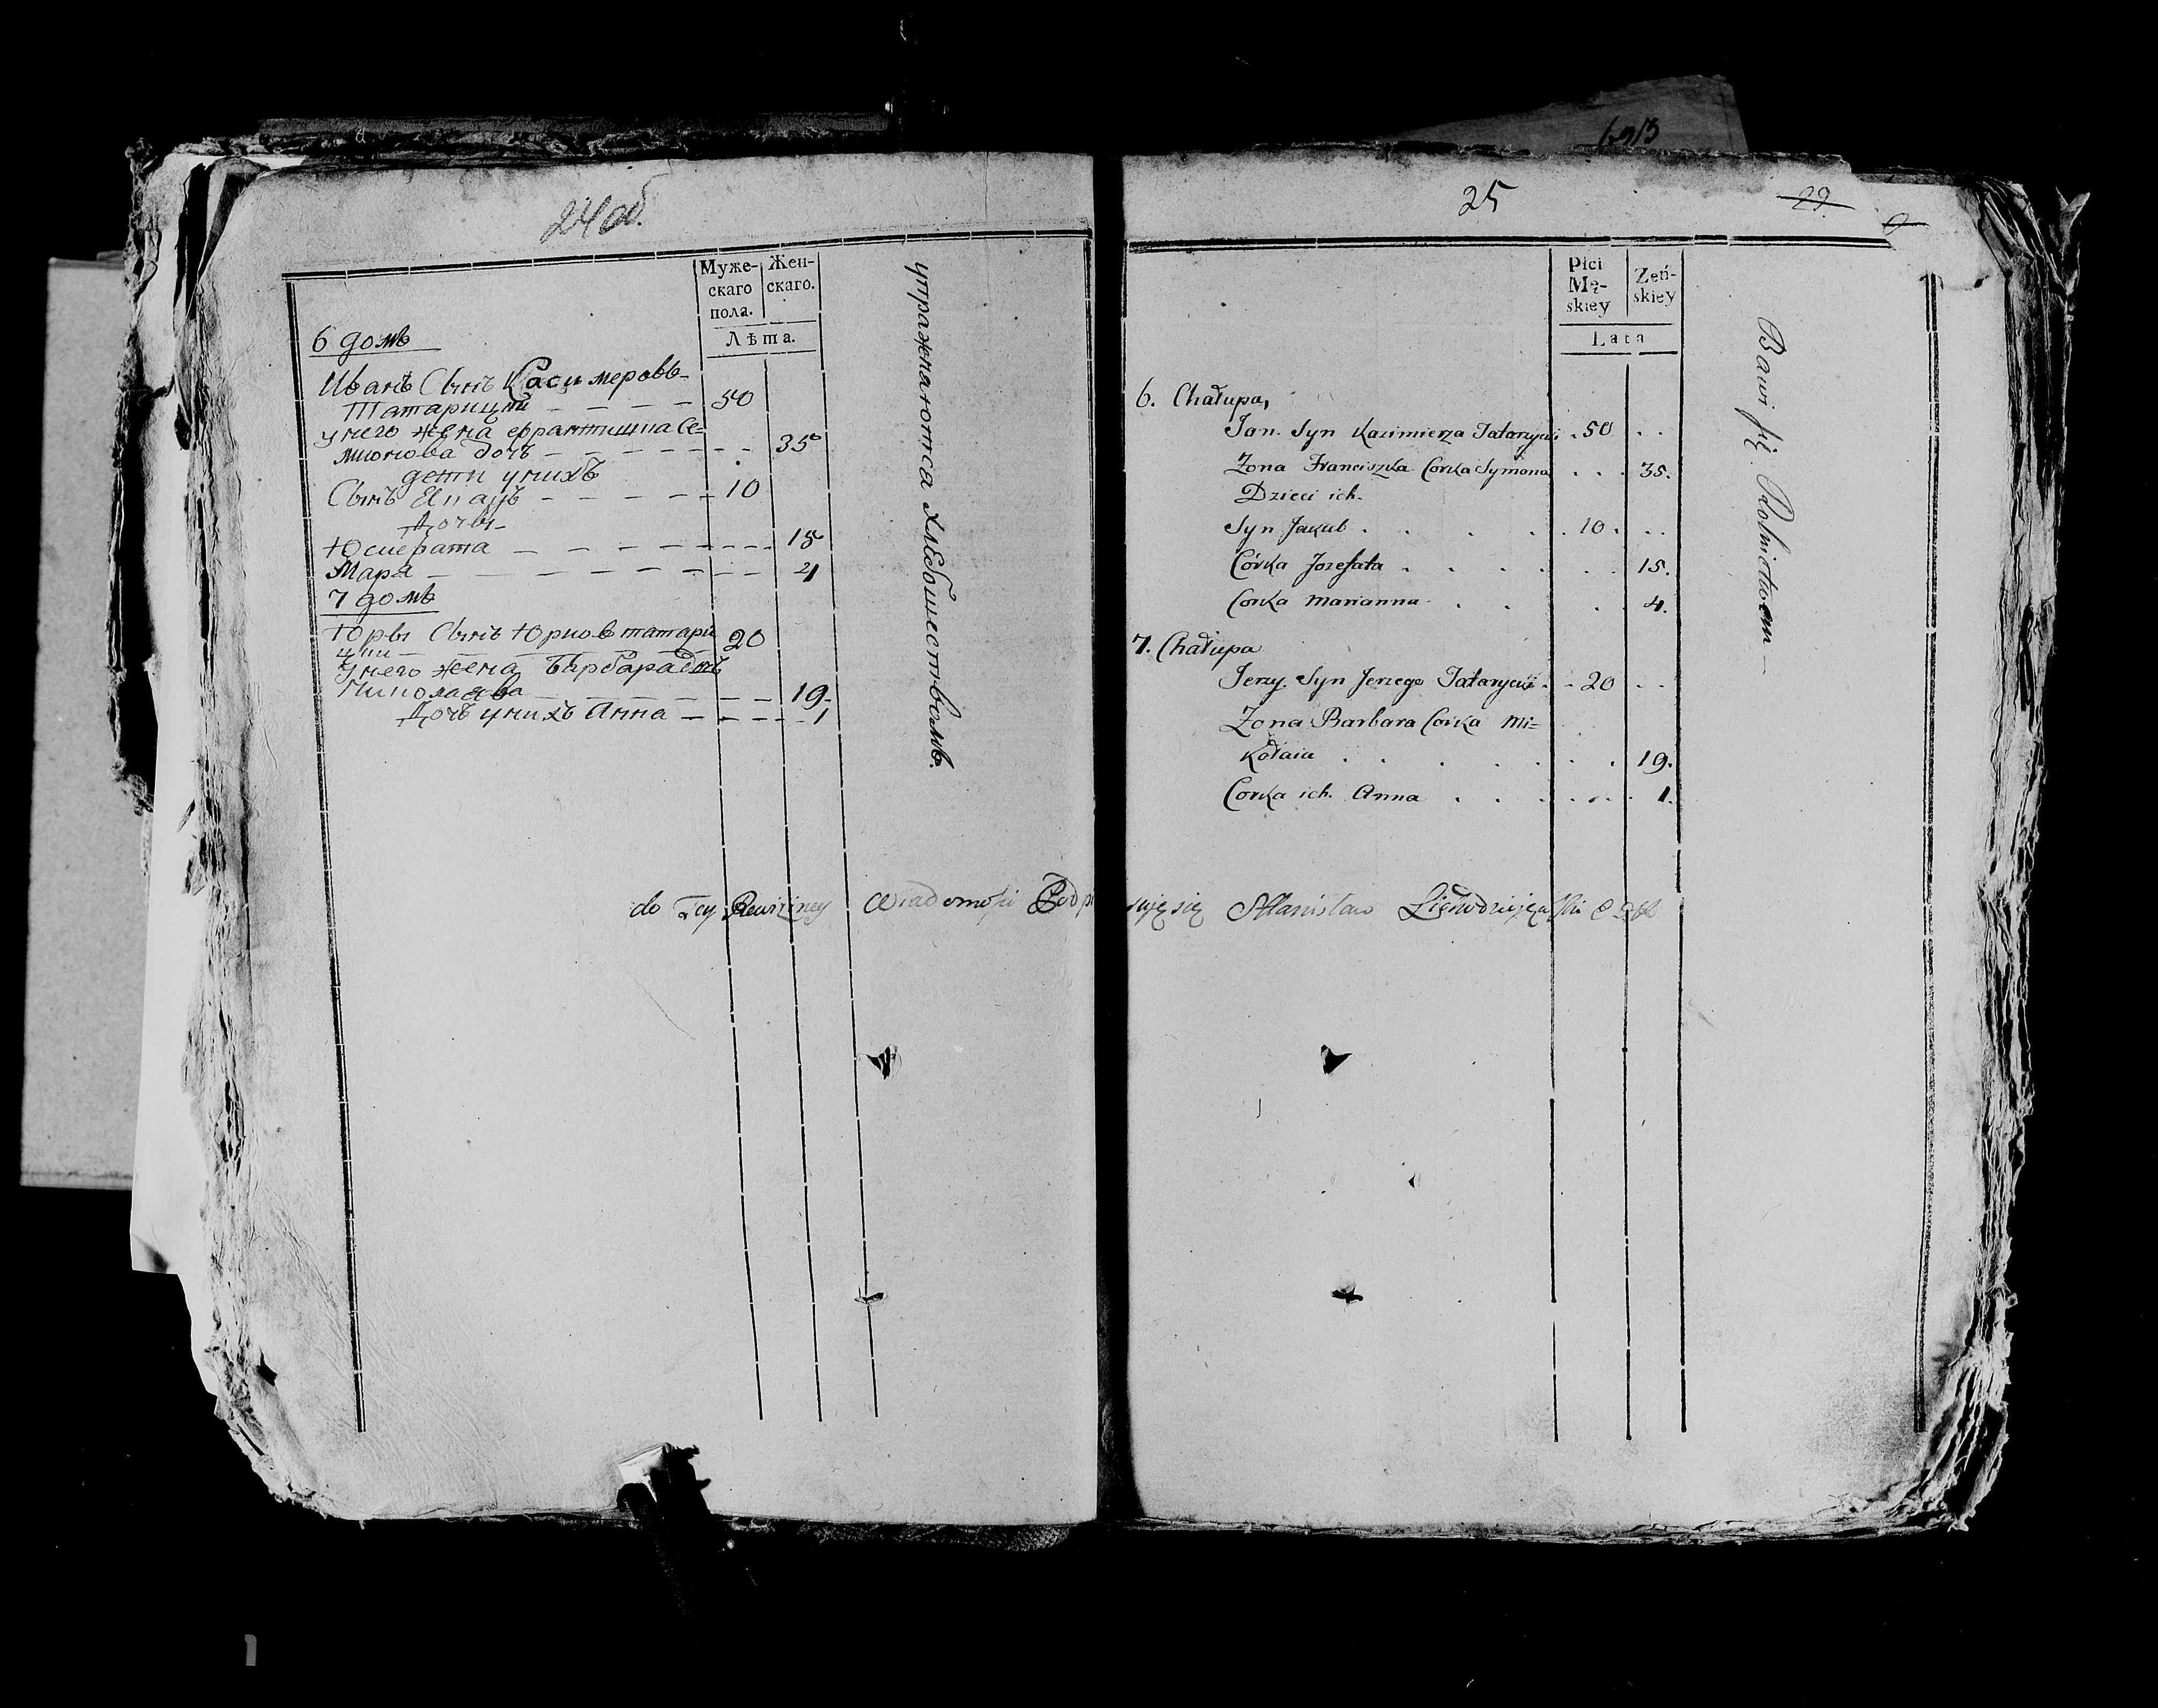 24 об.
Муже-
скаго
пола.
Жен-
скаго.
Лѣта.
6 домъ
Иванъ Сынъ Касимеровъ-
Татарицкий 50
у него жена ефрантишка Се-
мионова дочъ 35
дети у нихъ
Сынъ Якубъ 10
Дочъ-
Юсцефата 15
Маря 4
7 домъ
Юръи Сынъ Юриов татари
цки 20
У него жена Барбара дочъ
Николаява 19
Дочъ у нихъ Анна 1
упражнаютса хлебошествомъ.
25
29.
Płci
Mę-
skiey
Zeń-
skiey
Lata
6. Chałupa,
Jan. Syn Kazimierza Tatarycki 50
Zona Franciszka Corka Symona 35.
Dzieci ich.
Syn Jakub 10.
Córka Jozefata 15.
Corka Marianna 4.
7. Chałupa
Jerzy. Syn Jerzego Tatarycki 20
Zona Barbara Corka Mi-
kołaia 19.
Corka ich. Anna 1.
Bawi się Rolnictwem
do Tey Rewizyney Wiadomości Podpisuję się Stanisław